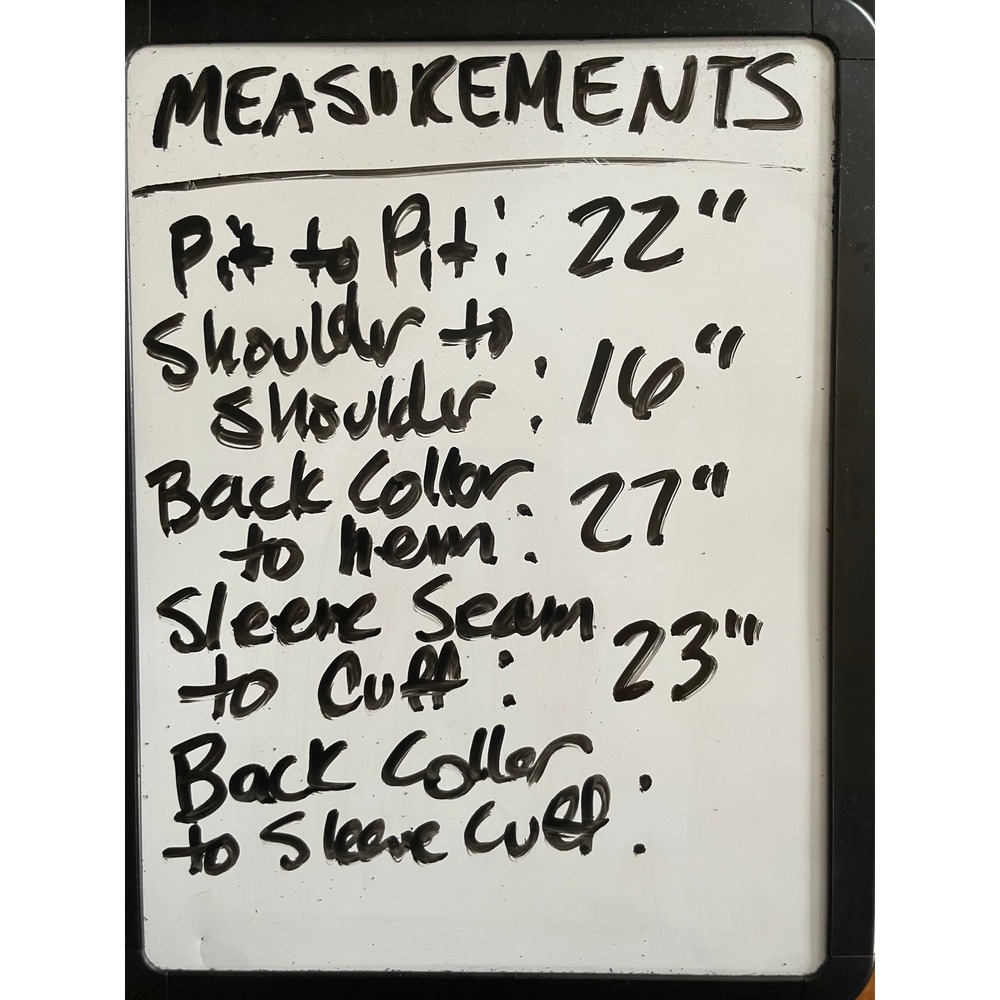 MEASUREMENTS
Pit to Pit: 22"
Shoulder to
Shoulder : 16"
Back Collar
to hem : 27"
Sleeve Seam
to Cuff : 23"
Back Coller
to Sleeve Cuff :